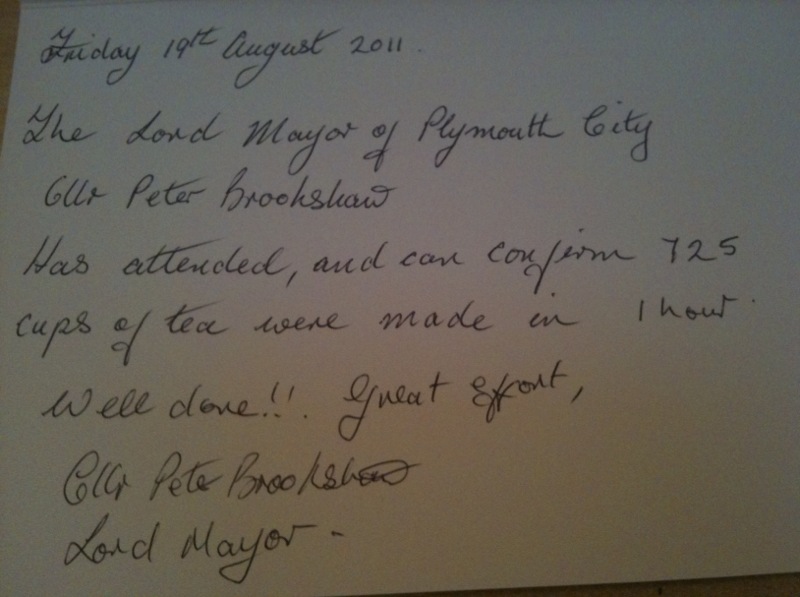 Friday 19th August 2011.
The Lord Mayor of Plymouth City
Cllr Peter Brookshaw
Has attended, and can confirm 725
cups of tea were made in 1 hour.
Well done!!. Great effort,
Cllr Peter Brookshaw
Lord Mayor -